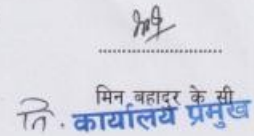 मिन बहादुर के सी
नि. कार्यालय प्रमुख